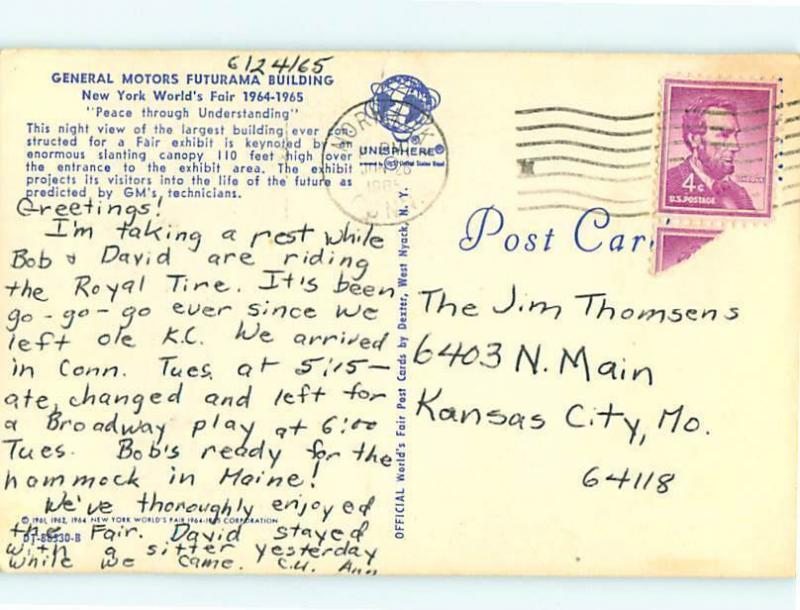 6/24/65
GENERAL MOTORS FUTURAMA BUILDING
New York World's Fair 1964-1965
"Peace through Understanding"
This night view of the largest building ever con-
structed for a Fair exhibit is keynoted by an
enormous slanting canopy 110 feet high over
the entrance to the exhibit area. The exhibit
projects its visitors into the life of the future as
predicted by GM's technicians.
Greetings!
I'm taking a rest while
Bob & David are riding
the Royal Tire. It's been
go-go-go ever since we
left ole K.C. We arrived
in Conn. Tues. at 5:15—
ate, changed and left for
a Broadway play at 6:00
Tues. Bob's ready for the
hammock in Maine!
We've thoroughly enjoyed
the Fair. David stayed
with a sitter yesterday
while we came. C.U. Ann
© 1961, 1962, 1964 NEW YORK WORLD'S FAIR 1964-1965 CORPORATION
UNISPHERE®
presented by USS United States Steel
NORWALK
1965
CONN.
OFFICIAL World's Fair Post Cards by Dexter, West Nyack, N. Y.
4¢
LINCOLN
U.S. POSTAGE
Post Car
The Jim Thomsens
6403 N. Main
Kansas City, Mo.
64118